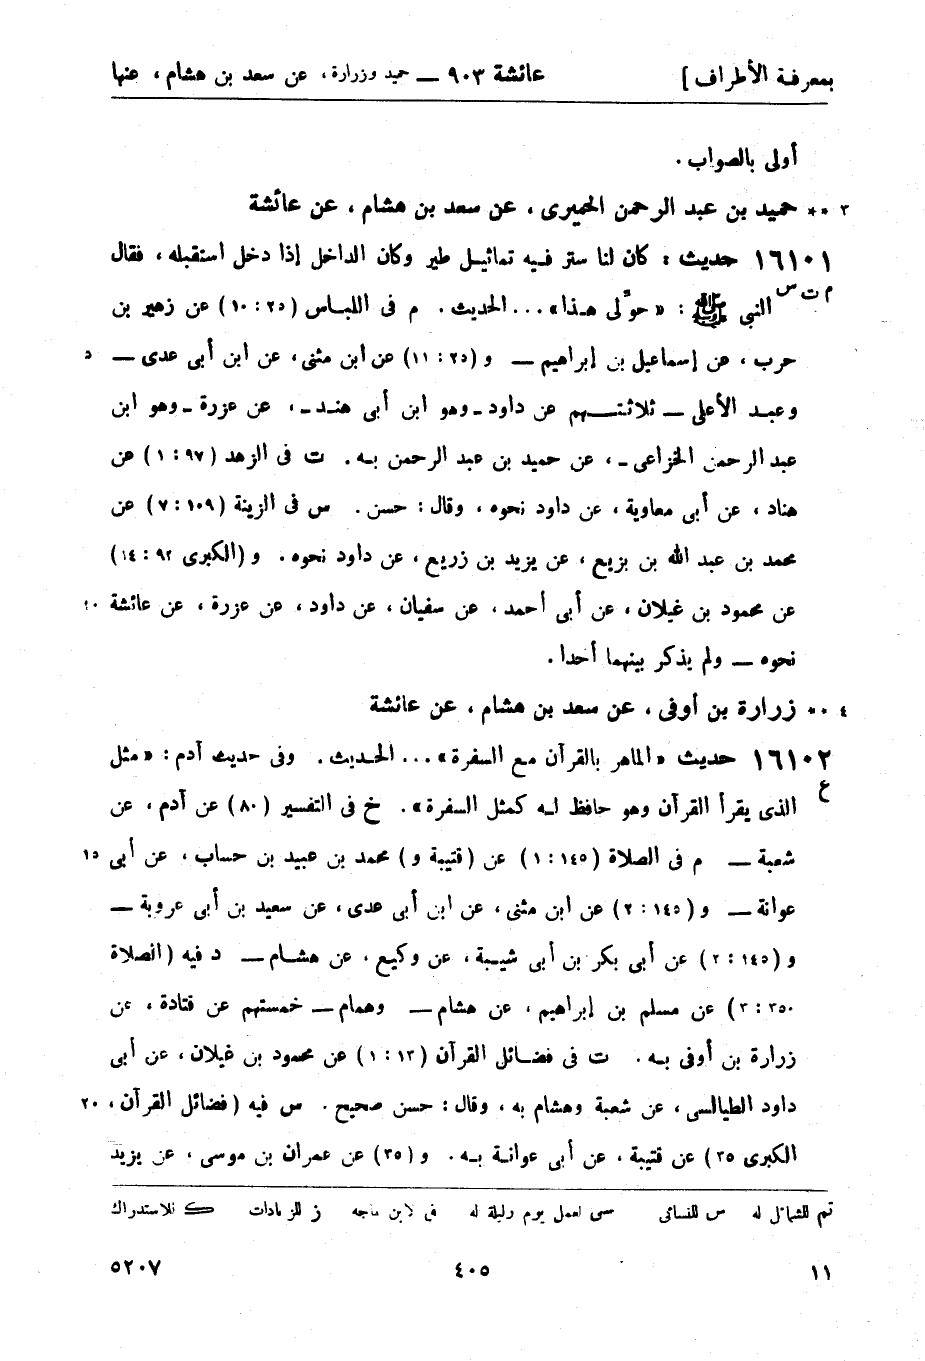 بمعرفة الأطراف ] عائشة ٩٠٣ ــ حميد وزرارة، عن سعد بن هشام، عنها
أولى بالصواب.
٣ ** حميد بن عبد الرحمن الحميرى، عن سعد بن هشام، عن عائشة
١٦١٠١ حديث: كان لنا ستر فيه تماثيل طير وكان الداخل إذا دخل استقبله، فقال
م ت س النبى ﷺ: «حوِّلى هذا»... الحديث. م فى اللباس (٢٥: ١٠) عن زهير بن
حرب، عن إسماعيل بن إبراهيم ــ و (٢٥: ١١) عن ابن مثنى، عن ابن أبى عدى ــ ٥
وعبد الأعلى ــ ثلاثتهم عن داود ـ وهو ابن أبى هند ـ، عن عزرة ـ وهو ابن
عبد الرحمن الخزاعى ـ، عن حميد بن عبد الرحمن به. ت فى الزهد (٩٧: ١) عن
هناد، عن أبى معاوية، عن داود نحوه، وقال: حسن. س فى الزينة (١٠٩: ٧) عن
محمد بن عبد الله بن بزيع، عن يزيد بن زريع، عن داود نحوه. و (الكبرى ٩٢: ١٤)
عن محمود بن غيلان، عن أبى أحمد، عن سفيان، عن داود، عن عزرة، عن عائشة ١٠
نحوه ــ ولم يذكر بينهما أحدا.
٤ ** زرارة بن أوفى، عن سعد بن هشام، عن عائشة
١٦١٠٢ حديث «الماهر بالقرآن مع السفرة»... الحديث. وفى حديث آدم: «مثل
ع الذى يقرأ القرآن وهو حافظ له كمثل السفرة». خ فى التفسير (٨٠) عن آدم، عن
شعبة ــ م فى الصلاة (١٤٥: ١) عن (قتيبة و) محمد بن عبيد بن حساب، عن أبى ١٥
عوانة ــ و (١٤٥: ٢) عن ابن مثنى، عن ابن أبى عدى، عن سعيد بن أبى عروبة ــ
و (١٤٥: ٢) عن أبى بكر بن أبى شيبة، عن وكيع، عن هشام ــ د فيه (الصلاة
٣٥٠: ٣) عن مسلم بن إبراهيم، عن هشام ــ وهمام ــ خمستهم عن قتادة، عن
زرارة بن أوفى به. ت فى فضائل القرآن (١٣: ١) عن محمود بن غيلان، عن أبى
داود الطيالسى، عن شعبة وهشام به، وقال: حسن صحيح. س فيه (فضائل القرآن، ٢٠
الكبرى ٣٥) عن قتيبة، عن أبى عوانة به. و (٣٥) عن عمران بن موسى، عن يزيد
تم للشمائل له س للنسائى سى لعمل يوم وليلة له ق لابن ماجه ز للزيادات ك للاستدراك
١١ ٤٠٥ ٥٢٠٧